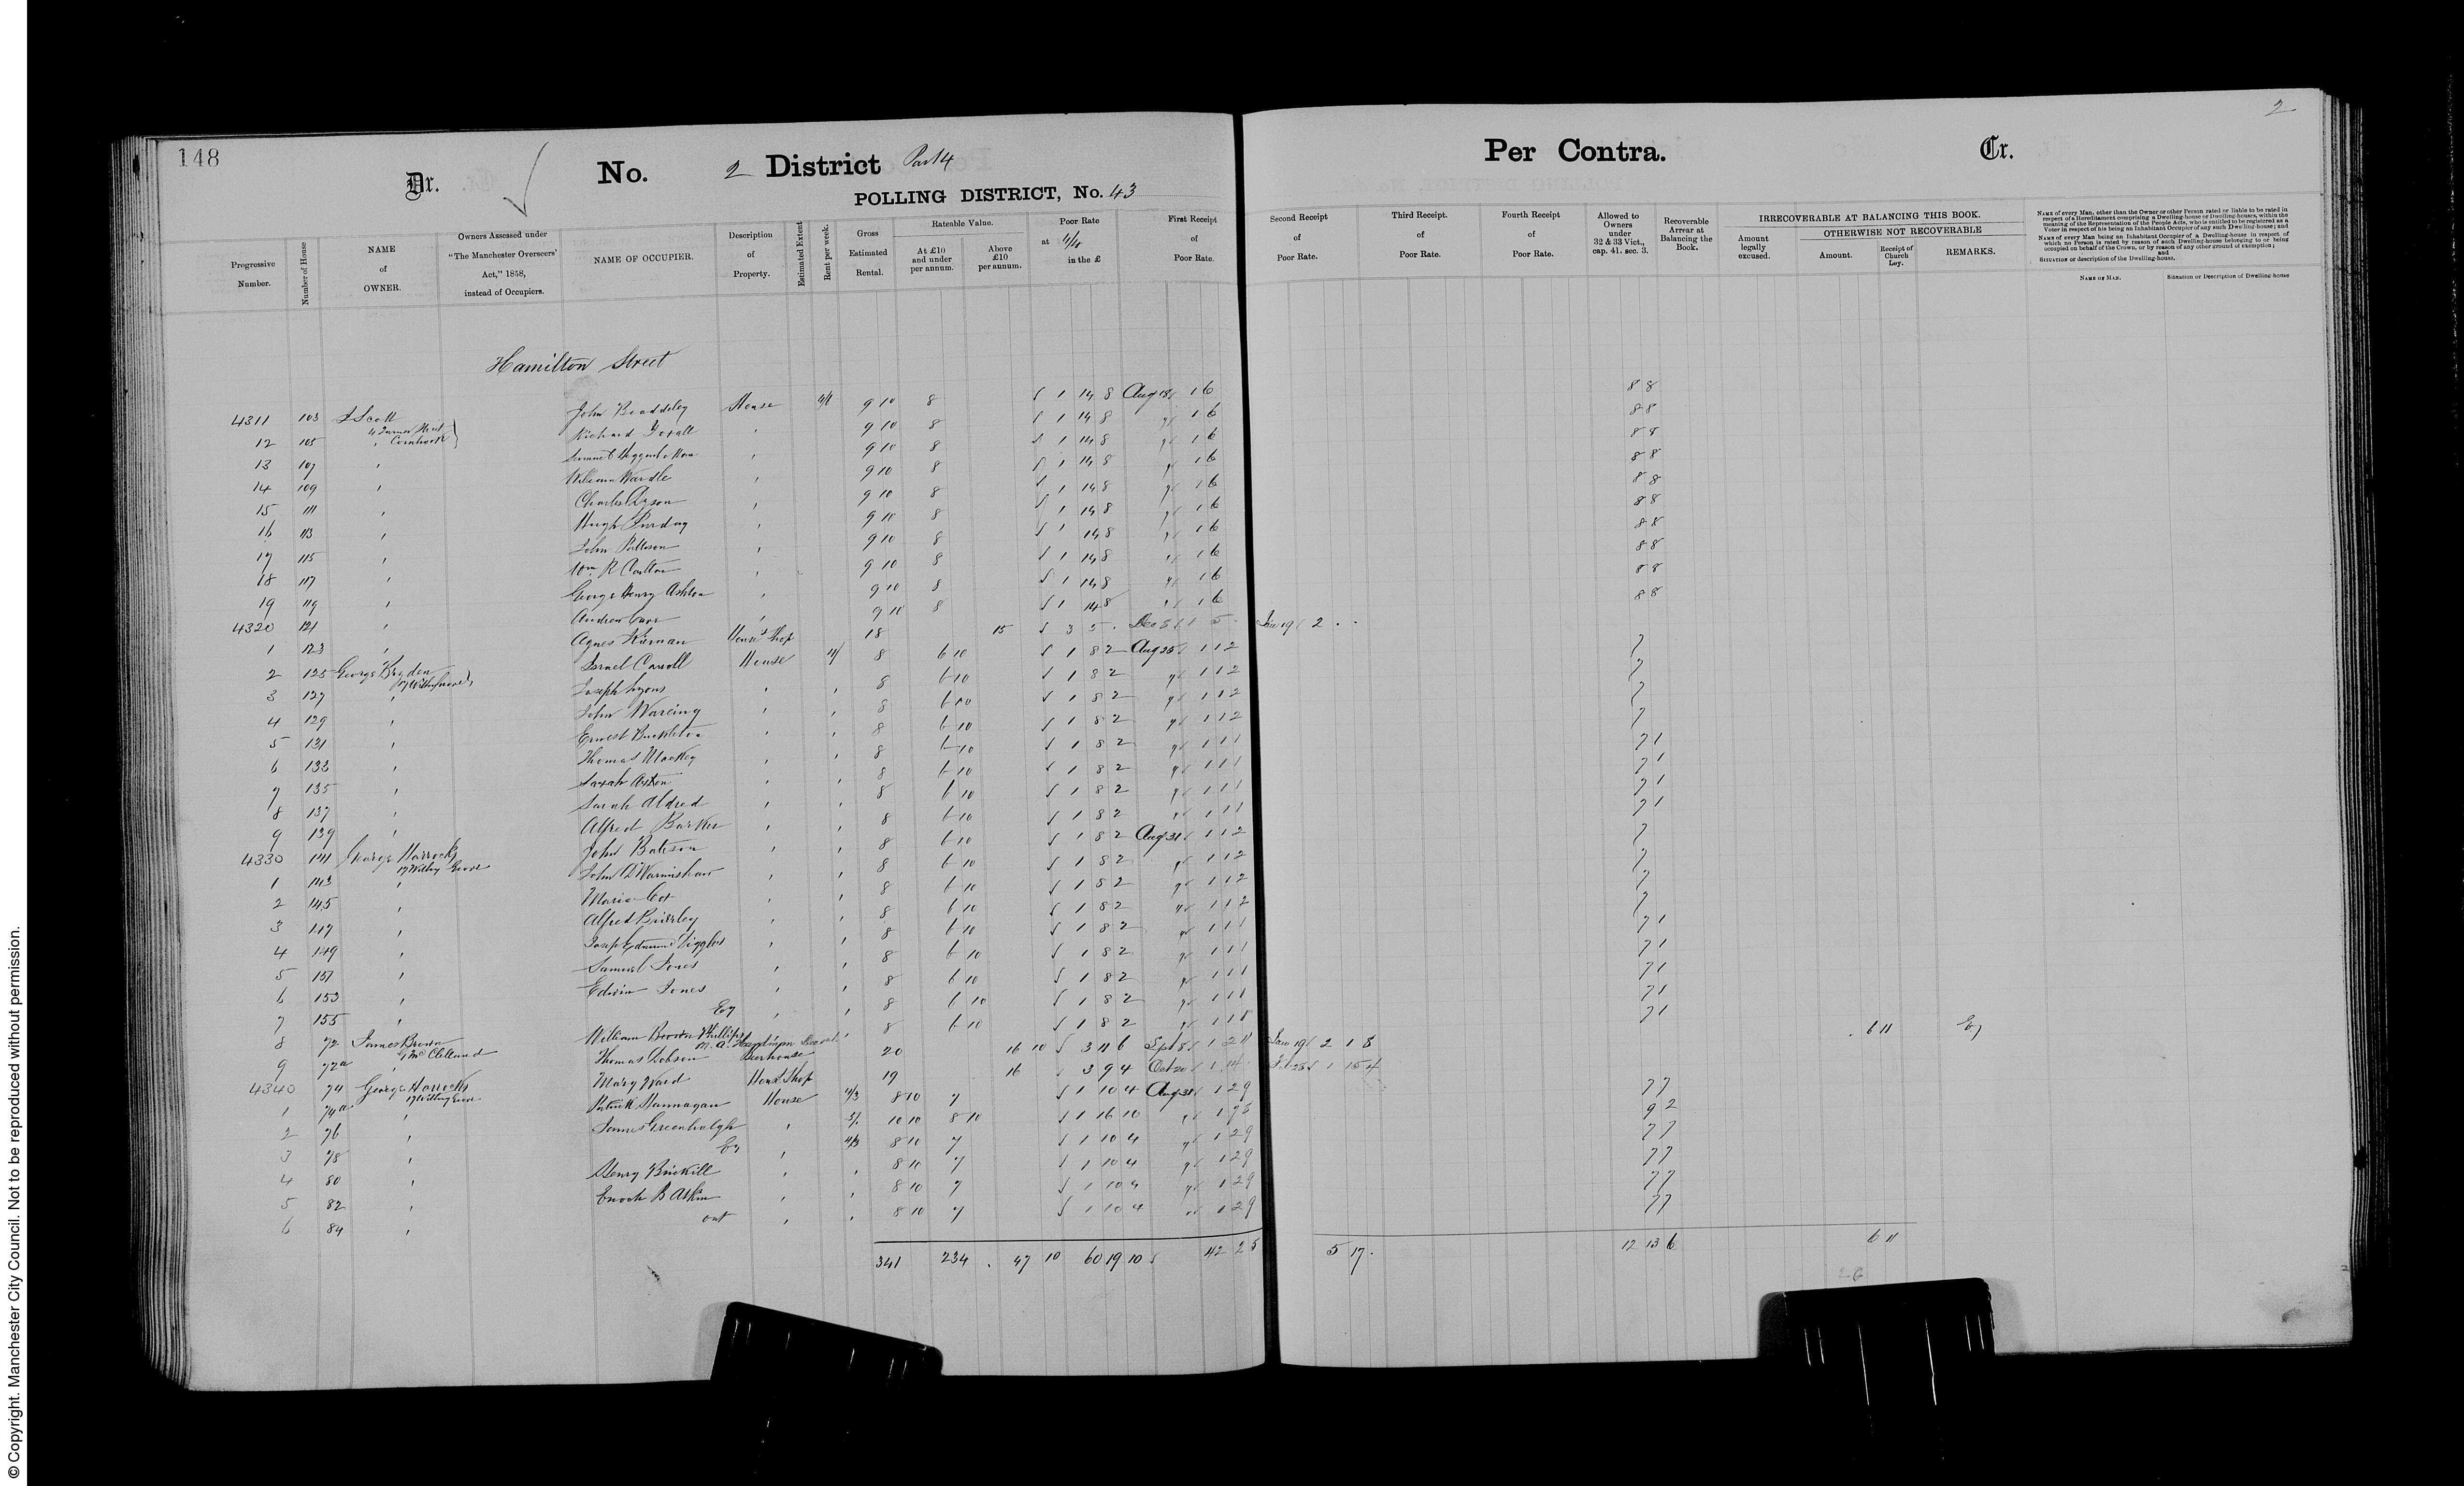 148
2
Dr.
No. 2 District Part 4
Per Contra.
Cr.
POLLING DISTRICT, No. 43
Progressive Number.
Number of House
NAME of OWNER.
Owners Assessed under "The Manchester Overseers' Act," 1858, instead of Occupiers.
NAME OF OCCUPIER.
Description of Property.
Estimated Extent
Rent per week.
Gross Estimated Rental.
Rateable Value.
At £10 and under per annum.
Above £10 per annum.
Poor Rate at 4/4 in the £
First Receipt of Poor Rate.
Second Receipt of Poor Rate.
Third Receipt. of Poor Rate.
Fourth Receipt of Poor Rate.
Allowed to Owners under 32 & 33 Vict., cap. 41. sec. 3.
Recoverable Arrear at Balancing the Book.
IRRECOVERABLE AT BALANCING THIS BOOK.
Amount legally excused.
OTHERWISE NOT RECOVERABLE
Amount.
Receipt of Church Ley.
REMARKS.
NAME of every Man, other than the Owner or other Person rated or liable to be rated in respect of a Hereditament comprising a Dwelling-house or Dwelling-houses, within the meaning of the Representation of the People Acts, who is entitled to be registered as a Voter in respect of his being an Inhabitant Occupier of any such Dwelling-house; and
NAME of every Man being an Inhabitant Occupier of a Dwelling-house in respect of which no Person is rated by reason of such Dwelling-house belonging to or being occupied on behalf of the Crown, or by reason of any other ground of exemption;
and
SITUATION or description of the Dwelling-house.
NAME OF MAN.
Situation or Description of Dwelling-house
Hamilton Street
4311 103 J Scott John Braddeley House 9 10 8 1 14 8 Aug 18 1 6 8 8
12 105 " Cornbrook Richard 9 10 8 1 14 8 1 6 8 8
13 107 " 9 10 8 1 14 8 1 6 8 8
14 109 " William Wardle 9 10 8 1 14 8 1 6 8 8
15 111 " Charles Dyson 9 10 8 1 14 8 1 6 8 8
16 113 " Hugh Purday 9 10 8 1 14 8 1 6 8 8
17 115 " John Patteson 9 10 8 1 14 8 1 6 8 8
18 117 " Wm R Carlton 9 10 8 1 14 8 1 6 8 8
19 119 " George Henry Ashton 9 10 8 1 14 8 1 6 8 8
4320 121 " Andrew Carr 9 10 8 1 14 8 1 6 8 8
1 123 " Agnes Kiernan House & Shop 18 15 3 5 . Dec 5 1 5 . Jan 19 2 . .
2 125 George Bryden Israel Carroll House 4/ 8 6 10 1 8 2 Aug 25 1 1 2 7
3 127 " Joseph Lyons 8 6 10 1 8 2 1 1 2 7
4 129 " John Wareing 8 6 10 1 8 2 1 1 2 7
5 131 " Ernest Buckleton 8 6 10 1 8 2 1 1 2 7
6 133 " Thomas Mackey 8 6 10 1 8 2 1 1 1 7 1
7 135 " Sarah Aston 8 6 10 1 8 2 1 1 1 7 1
8 137 " Sarah Aldred 8 6 10 1 8 2 1 1 1 7 1
9 139 " Alfred Barker 8 6 10 1 8 2 1 1 1 7 1
4330 141 George Horrocks 17 Withy Grove John Bateson 8 6 10 1 8 2 Aug 31 1 1 2 7
1 143 " John D Warmishaw 8 6 10 1 8 2 1 1 2 7
2 145 " Maria Cox 8 6 10 1 8 2 1 1 2 7
3 147 " Alfred Brierley 8 6 10 1 8 2 1 1 2 7
4 149 " Joseph Edmund Diggles 8 6 10 1 8 2 1 1 1 7 1
5 151 " Samuel Jones 8 6 10 1 8 2 1 1 1 7 1
6 153 " Edwin Jones 8 6 10 1 8 2 1 1 1 7 1
7 155 " Ey 8 6 10 1 8 2 1 1 1 7 1
8 72 James Brown William Brown Phillips 8 6 10 1 8 2 7 1 . 6 11 Ey
9 72a Mc Clelland Thomas Dobson Beerhouse 20 16 10 3 11 6 Sept 8 Jan 19 2 1 8
4340 74 George Horrocks 17 Withy Grove Mary Ward House & Shop 19 16 3 9 4 Oct 20 1 14 . Feb 25 1 15 4
1 74a " Patrick Hannagan House 4/3 8 10 7 1 10 4 Aug 31 1 2 9 7 7
2 76 " James Greenhalgh 5/. 10 10 8 10 1 16 10 1 7 8 9 2
3 78 " Ey 4/3 8 10 7 1 10 4 1 2 9 7 7
4 80 " Henry Brickill 8 10 7 1 10 4 1 2 9 7 7
5 82 " Enoch B Askin 8 10 7 1 10 4 1 2 9 7 7
6 84 " out 8 10 7 1 10 4 1 2 9 7 7
341 234 . 47 10 60 19 10 42 2 5 5 17 . 12 13 6 6 11
© Copyright. Manchester City Council. Not to be reproduced without permission.